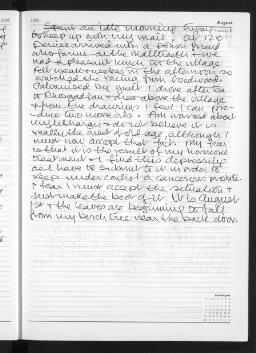 August
Spent an idle morning trying
to keep up with my mail. At 12.0
Denise arrived with a Polish friend
who farms at the Malltraeth & we
had a pleasant lunch in the village
Felt weak ourselves in the afternoon so
watched the racing from Goodwood.
Galvanised by guilt I drove after tea
to Bodgadfan & drew above the village
& from the drawings I feel I can pro-
-duce two more oils. Am worried about
my lethargy & do not believe it is
really the onset of old age, although I
must now accept that fact. My fear
is that it is the result of my hormone
treatment & I find this depressing
as I have to submit to it in order to
keep under control a cancerous prostate.
I fear I must accept the situation &
just make the best of it. It is August
1st & the leaves are beginning to fall
from my birch tree near the back door.